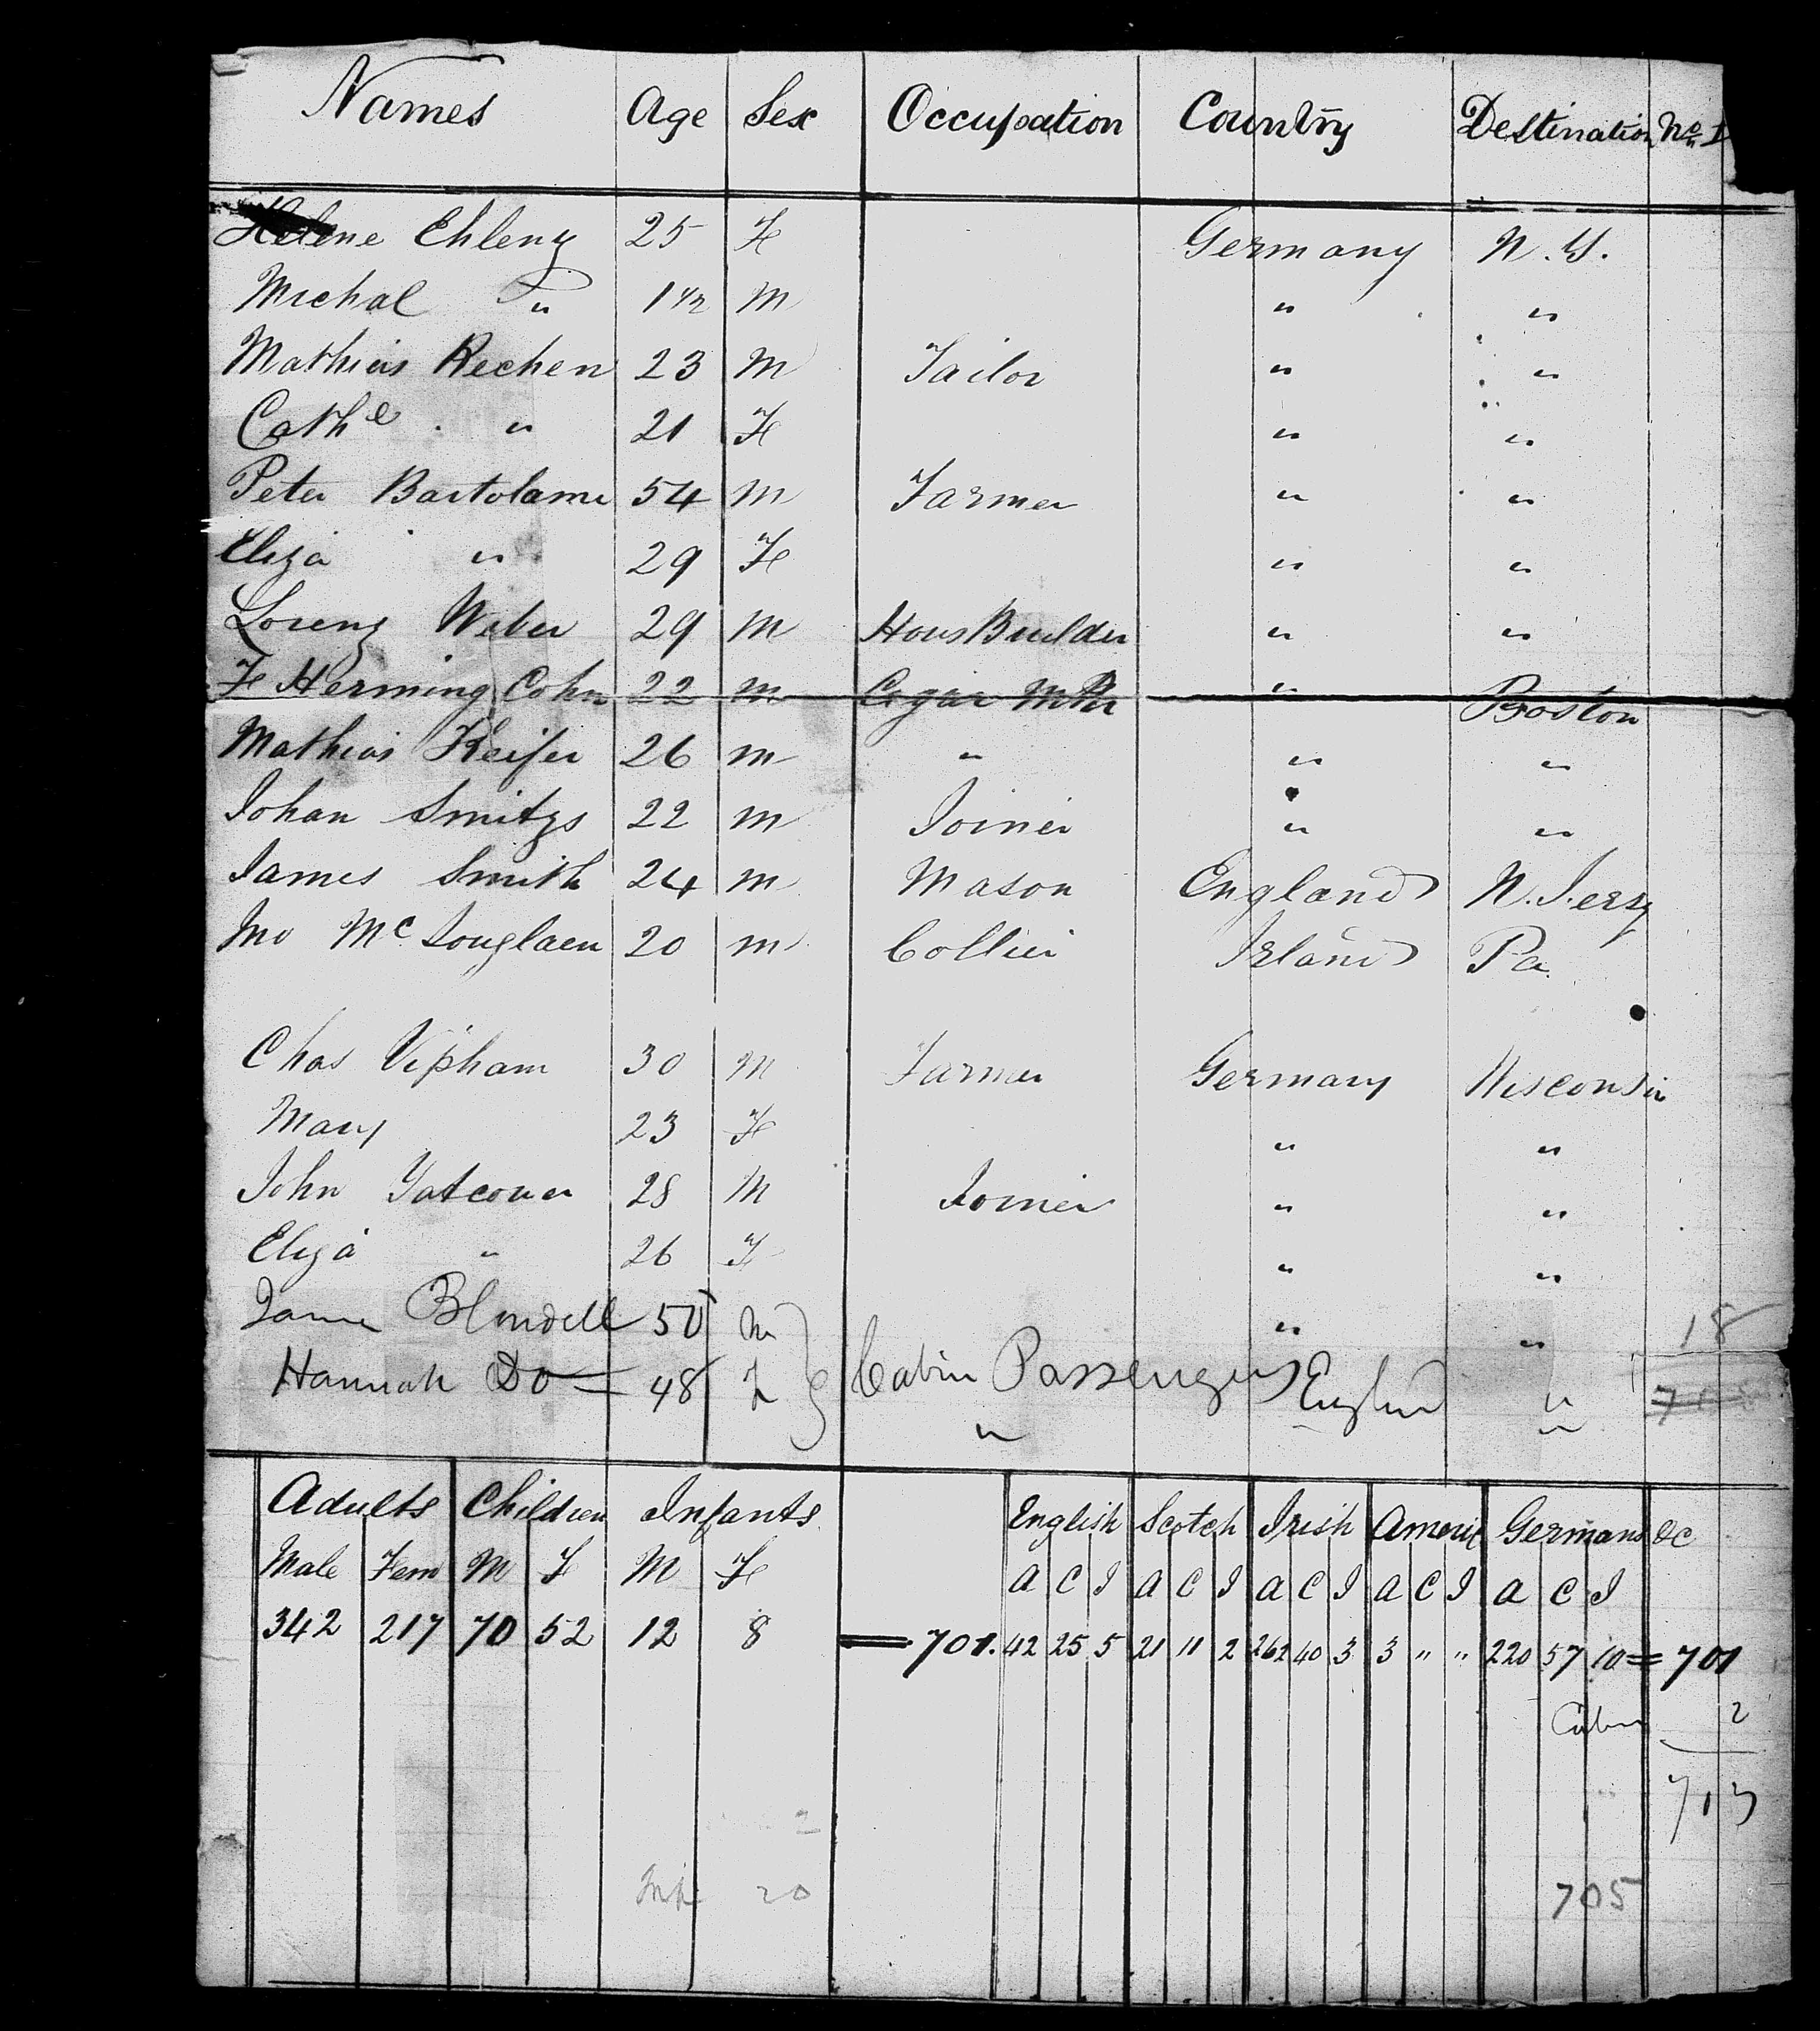 Names Age Sex Occupation Country Destination No
Helene Ehleng 25 F Germany N.Y.
Michal " 1 1/2 M " "
Mathias Rechen 23 M Tailor " "
Cathe " 21 F " "
Peter Bartolame 54 M Farmer " "
Eliza " 29 F " "
Lorenz Weber 29 M Hous Builder " "
F Herming Cohn 22 M Cigar Mkr " Boston
Mathias Keifer 26 M " " "
Johan Smitzs 22 M Joiner " "
James Smith 24 M Mason England N. Jersy
Jno Mc 20 M Collier Irland Pa
Chas Vipham 30 M Farmer Germany Wisconsin
Mary 23 F " "
John Yatcower 28 M Joiner " "
Eliza " 26 F " "
James Blondell 50 M " " 18
Hannah Do 48 F Cabin Passengers England "
" "
Adults Children Infants English Scotch Irish Americ Germans &c
Male Fem M F M F A C I A C I A C I A C I A C I
342 217 70 52 12 8 = 701. 42 25 5 21 11 2 262 40 3 3 " " 220 57 10 = 701
Cabin 2
703
Inf 20 705